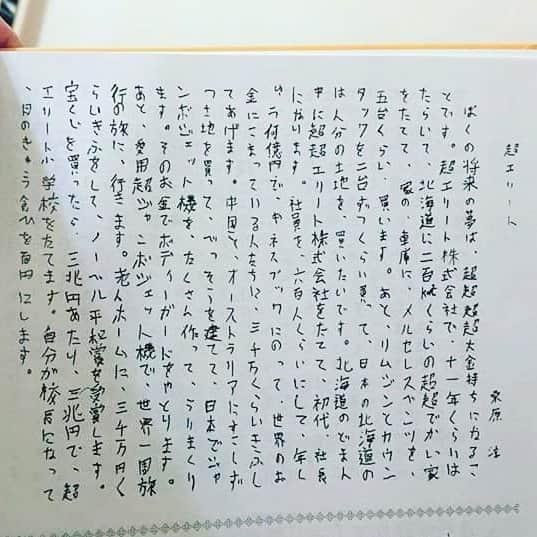 超エリート
原
ぼくの将来の夢は、超超超超大金持ちになるこ
とです。超エリート株式会社で、十一年くらいは
たらいて、北海道に二百坪くらいの超超でかい家
をたてて、家の、車庫に、メルセレスベンツを、
五台くらい、買います。あと、リムジンとカウン
タックを二台ずつくらい買って、日本の北海道の
は人分の土地を、買いたいです。北海道のどま人
中に超超エリート株式会社をたてて、初代、社長
になります。社員を、六百人くらいにして、年し
ゅう何億円で、ギネスブックにのって、世界のお
金にこまっている人たちに、三千万くらいきふし
てあげます。中国と、オーストラリアにすこしず
つ土地を買って、べっそうを建てて、日本でジャ
ンボジェット機を、たくさん作って、うりまくり
ます。そのお金でボディーガードをやとります。
あと、愛用超ジャンボジェット機で、世界一周旅
行の旅に、行きます。老人ホームに、三千万円く
らいきふをして、ノーベル平和賞を受賞します。
宝くじを買ったら、三兆円あたり、三兆円で、超
エリート小学校をたてます。自分が校長になって
、月のきゅう食ひを百円にします。